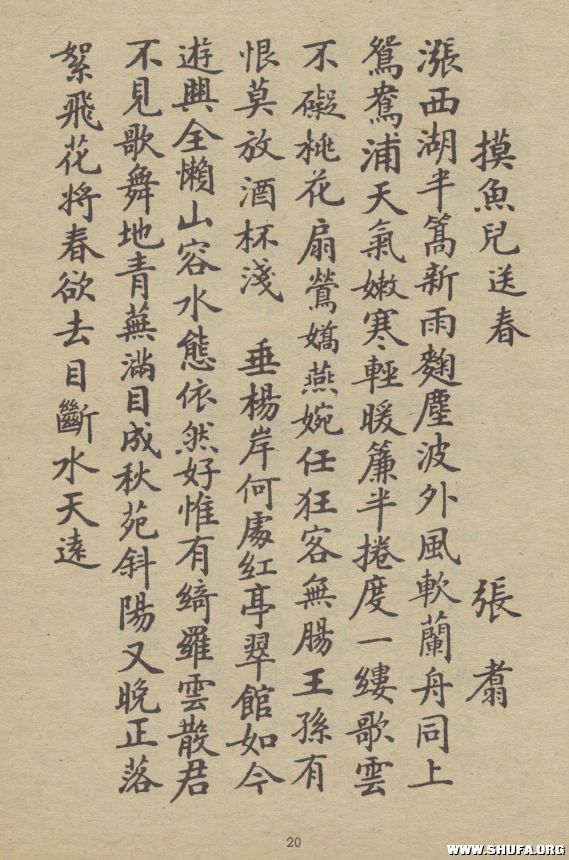 摸魚兒送春　張翥
漲西湖半篙新雨麴塵波外風軟蘭舟同上
鴛鴦浦天氣嫩寒輕暖簾半捲度一縷歌雲
不礙桃花扇鶯嬌燕婉任狂客無腸王孫有
恨莫放酒杯淺　垂楊岸何處紅亭翠館如今
遊興全懶山容水態依然好惟有綺羅雲散君
不見歌舞地青蕪滿目成秋苑斜陽又晚正落
絮飛花將春欲去目斷水天遠
20
WWW.SHUFA.ORG